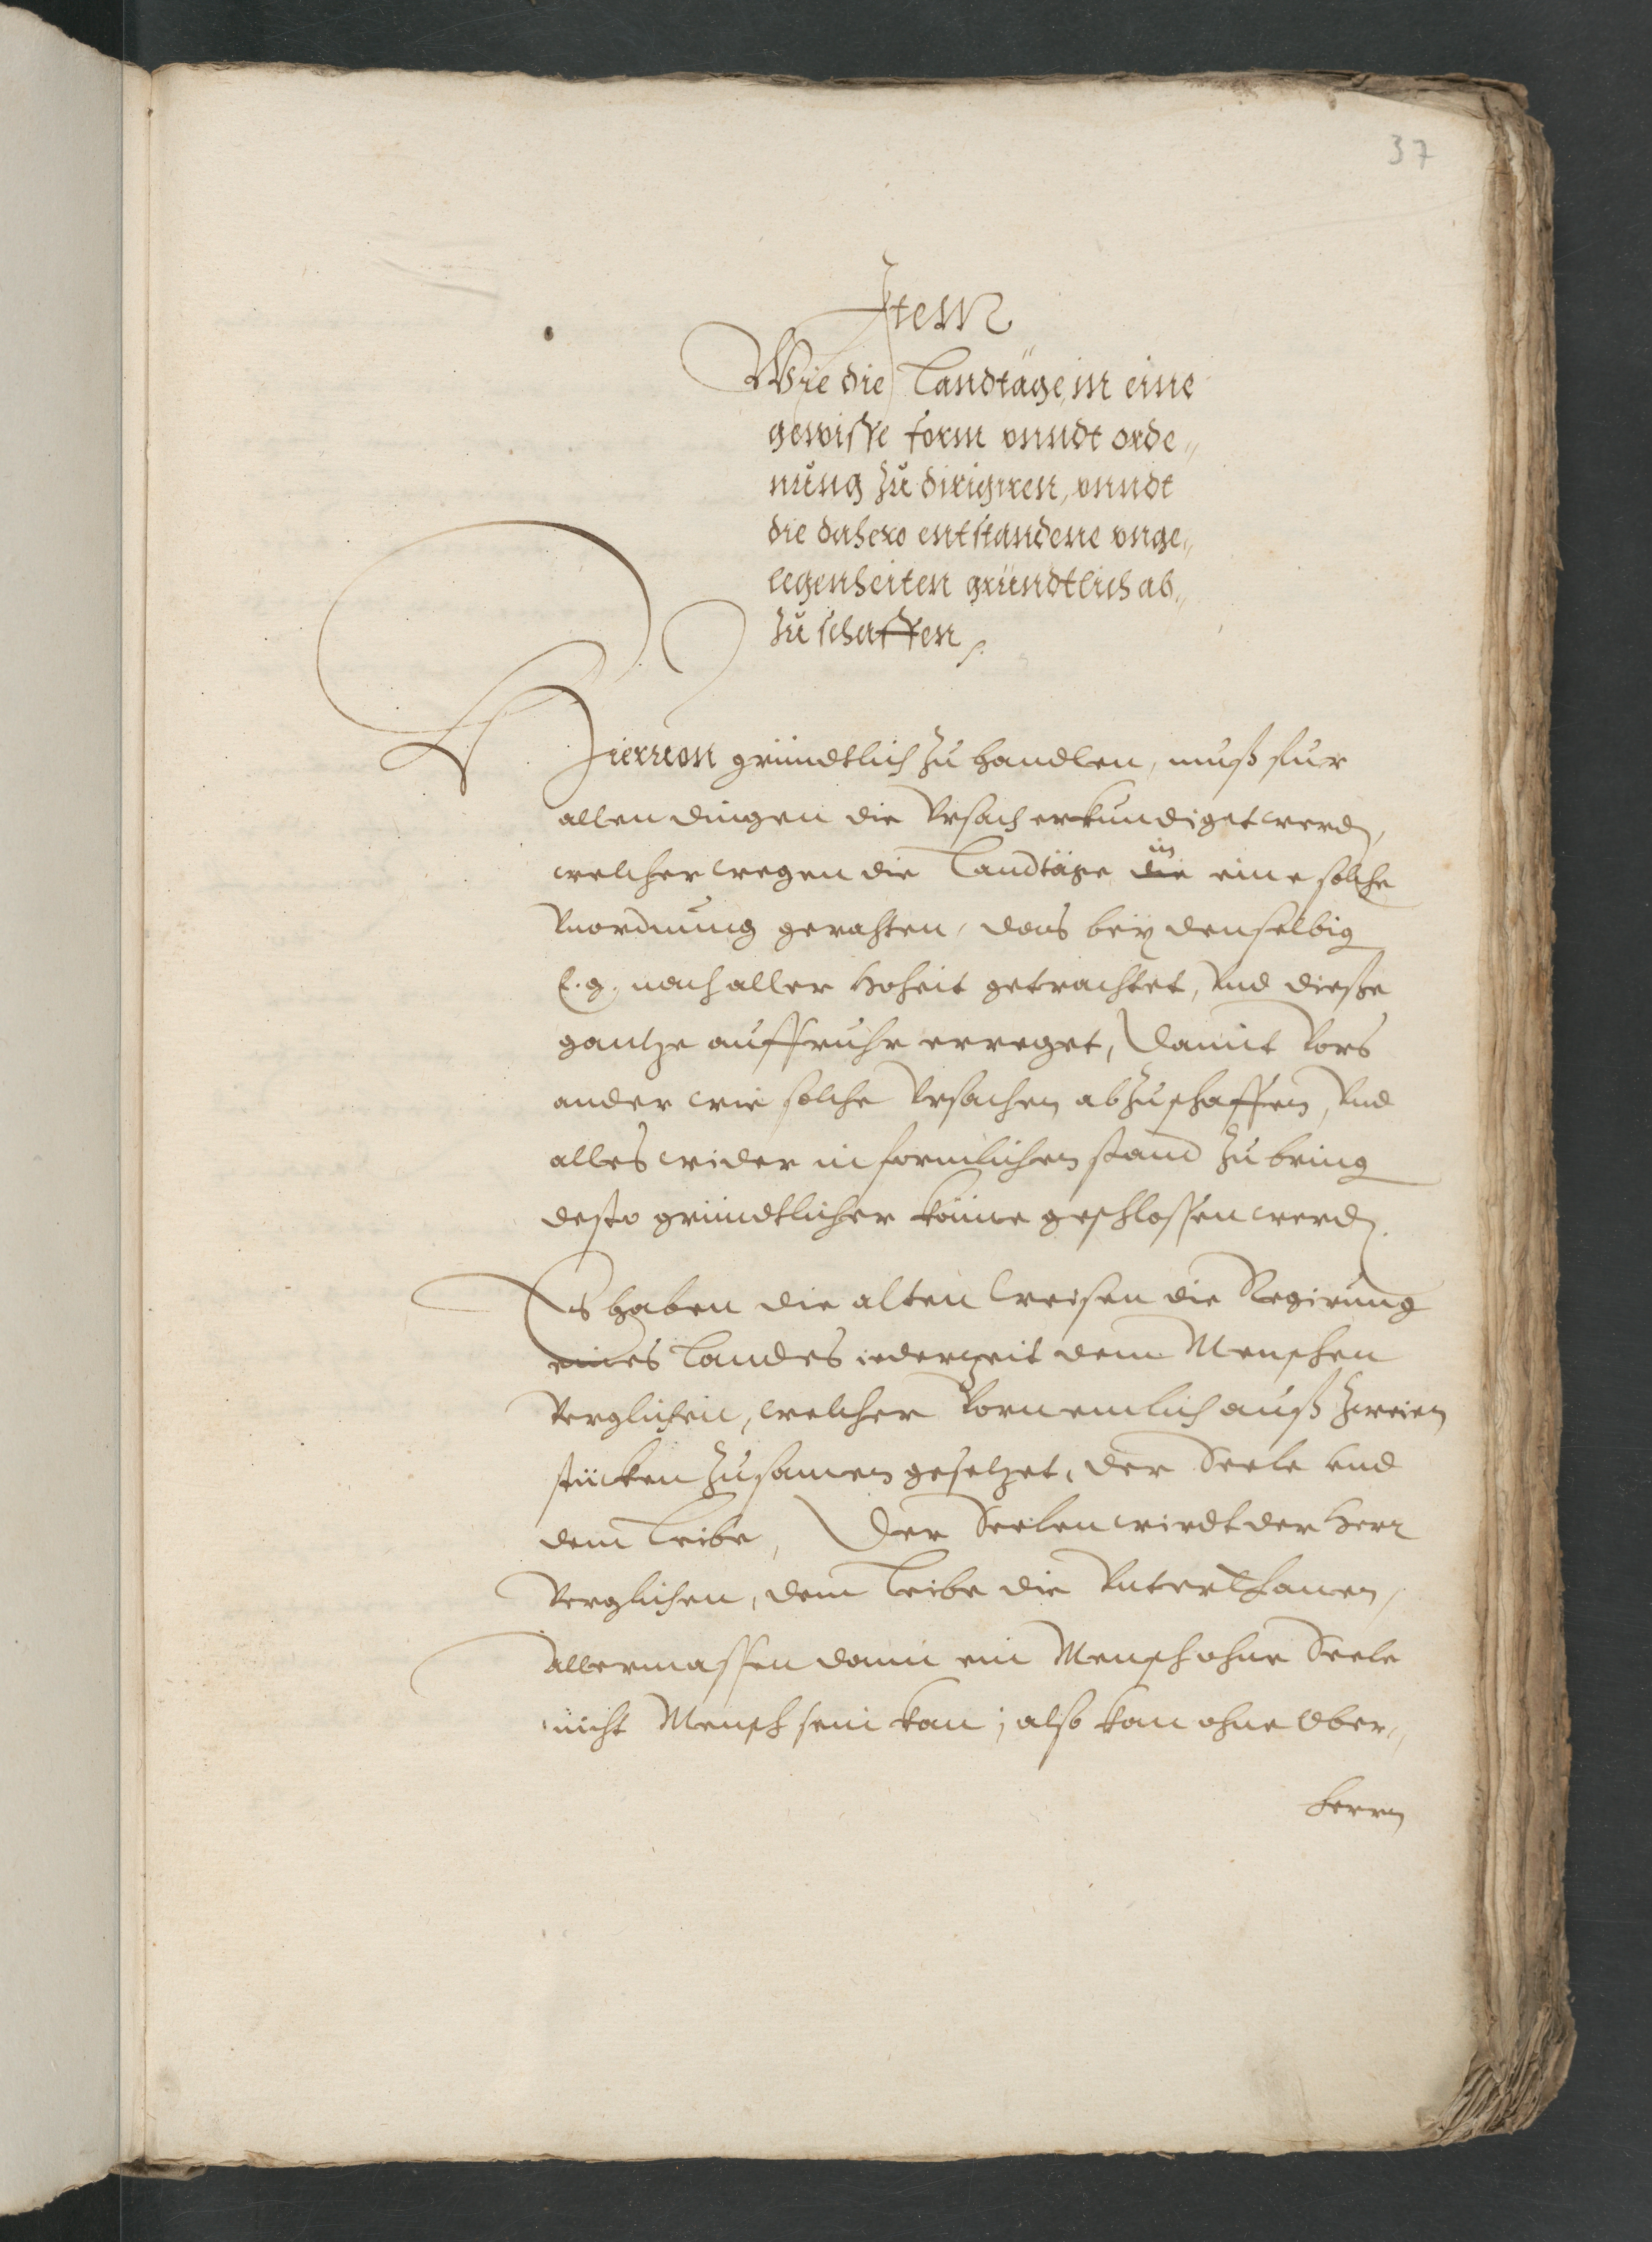 37
Item
Wie die Landtäge, in eine
gewisse form vnndt orde„
nung zu dirigiren, vnndt
die dahero entstandene vnge„
legenheiten gründtlich ab„
zu schaffen.
Hieruon gründtlich zu handlen, muß fur
allen dingen die Vrsach erkundiget werd,
welcher wegen die Landtäge die in eine solche
Vnordnung gerahten, das beÿ denselbig
E. g. nach aller Hoheit getrachtet, Vnd dieße
gantze auffruhr erreget, Damit Vors
ander wie solche Vrsachen abzuschaffen, Vnd
alles wider in formlichen stand zu bring
desto gründtlicher könne geschlossen werd.
Es haben die alten Weisen die Regirung
eines Landes iederzeit dem Menschen
Verglichen, welcher Vornemlich auß zweien
stücken zusamen gesetzet, der Seele vnd
dem Leibe, Der Seelen wirdt der Herr
Verglichen, dem Leibe die Vnterthanen,
Allermassen dann ein Mensch ohne Seele
nicht Mensch sein kan; also kan ohne Ober„
herrn